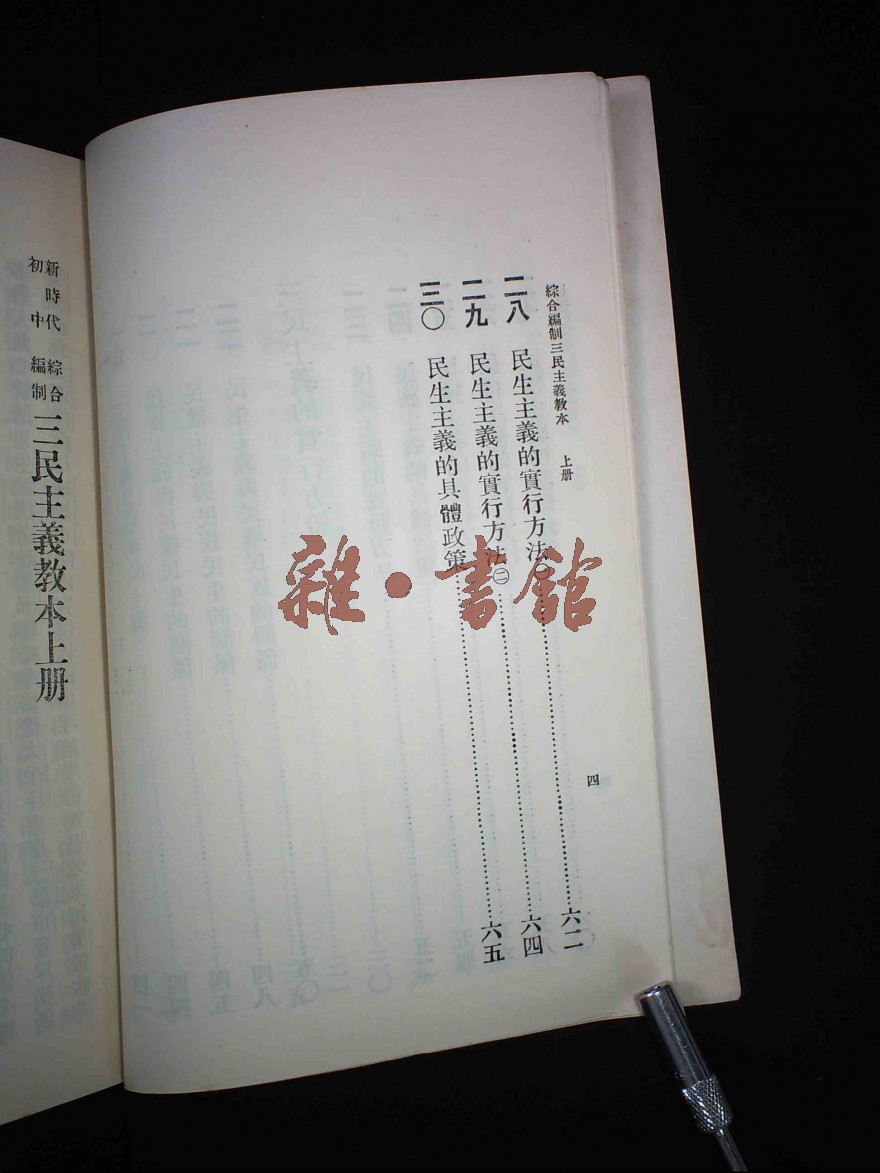 綜合編制三民主義教本 上册
二八 民生主義的實行方法㊀……六二
二九 民生主義的實行方法㊁……六四
三〇 民生主義的具體政策……六五
四
新時代 綜合
初中 編制
三民主義教本上册
雜·書館